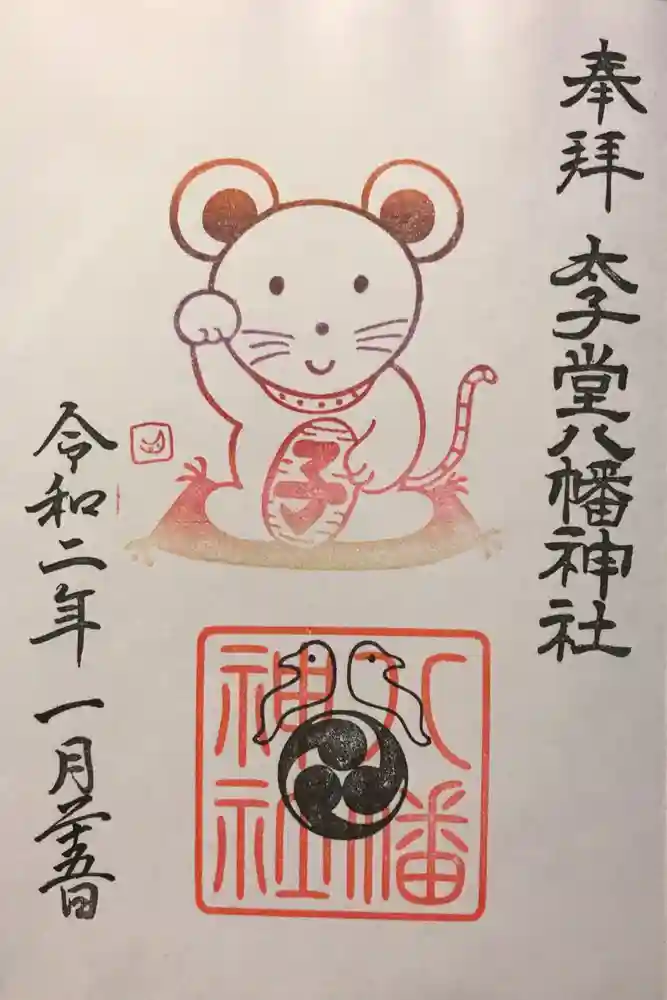 奉拝
太子堂八幡神社
子
八幡
神社
令和二年 一月廿五日